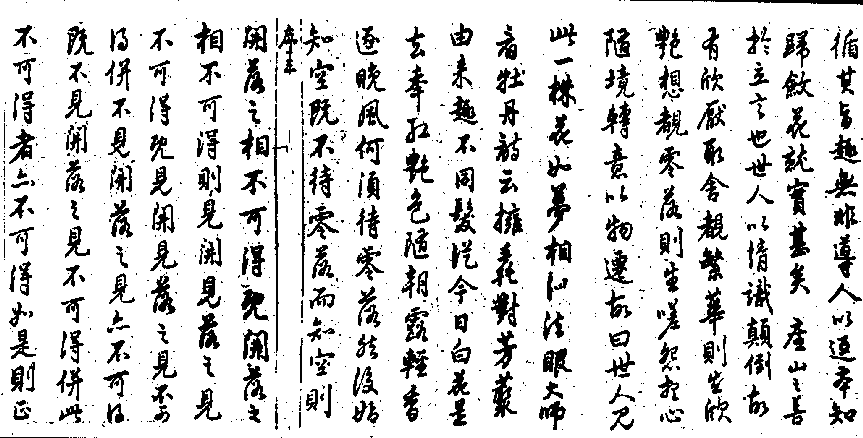 循其旨趣無非導人以返本知
歸斂花就實甚矣座山之善
於立言也世人以情識顛倒故
有欣厭取舍覩繁華則生欣
艷想覩零落則生嗟怨想心
隨境轉意以物遷故曰世人見
此一株花如夢相似法眼大師
看牡丹詩云擁毳對芳叢
由来趣不同髮從今日白花是
去年紅艷色隨朝露輕香
逐晚風何須待零落然後始
知空既不待零落而知空則
序
開落之相不可得既開落之
相不可得則見開見落之見
不可得既見開見落之見不可
得併不見開落之見亦不可得
既不見開落之見不可得併此
不可得者亦不可得如是則正